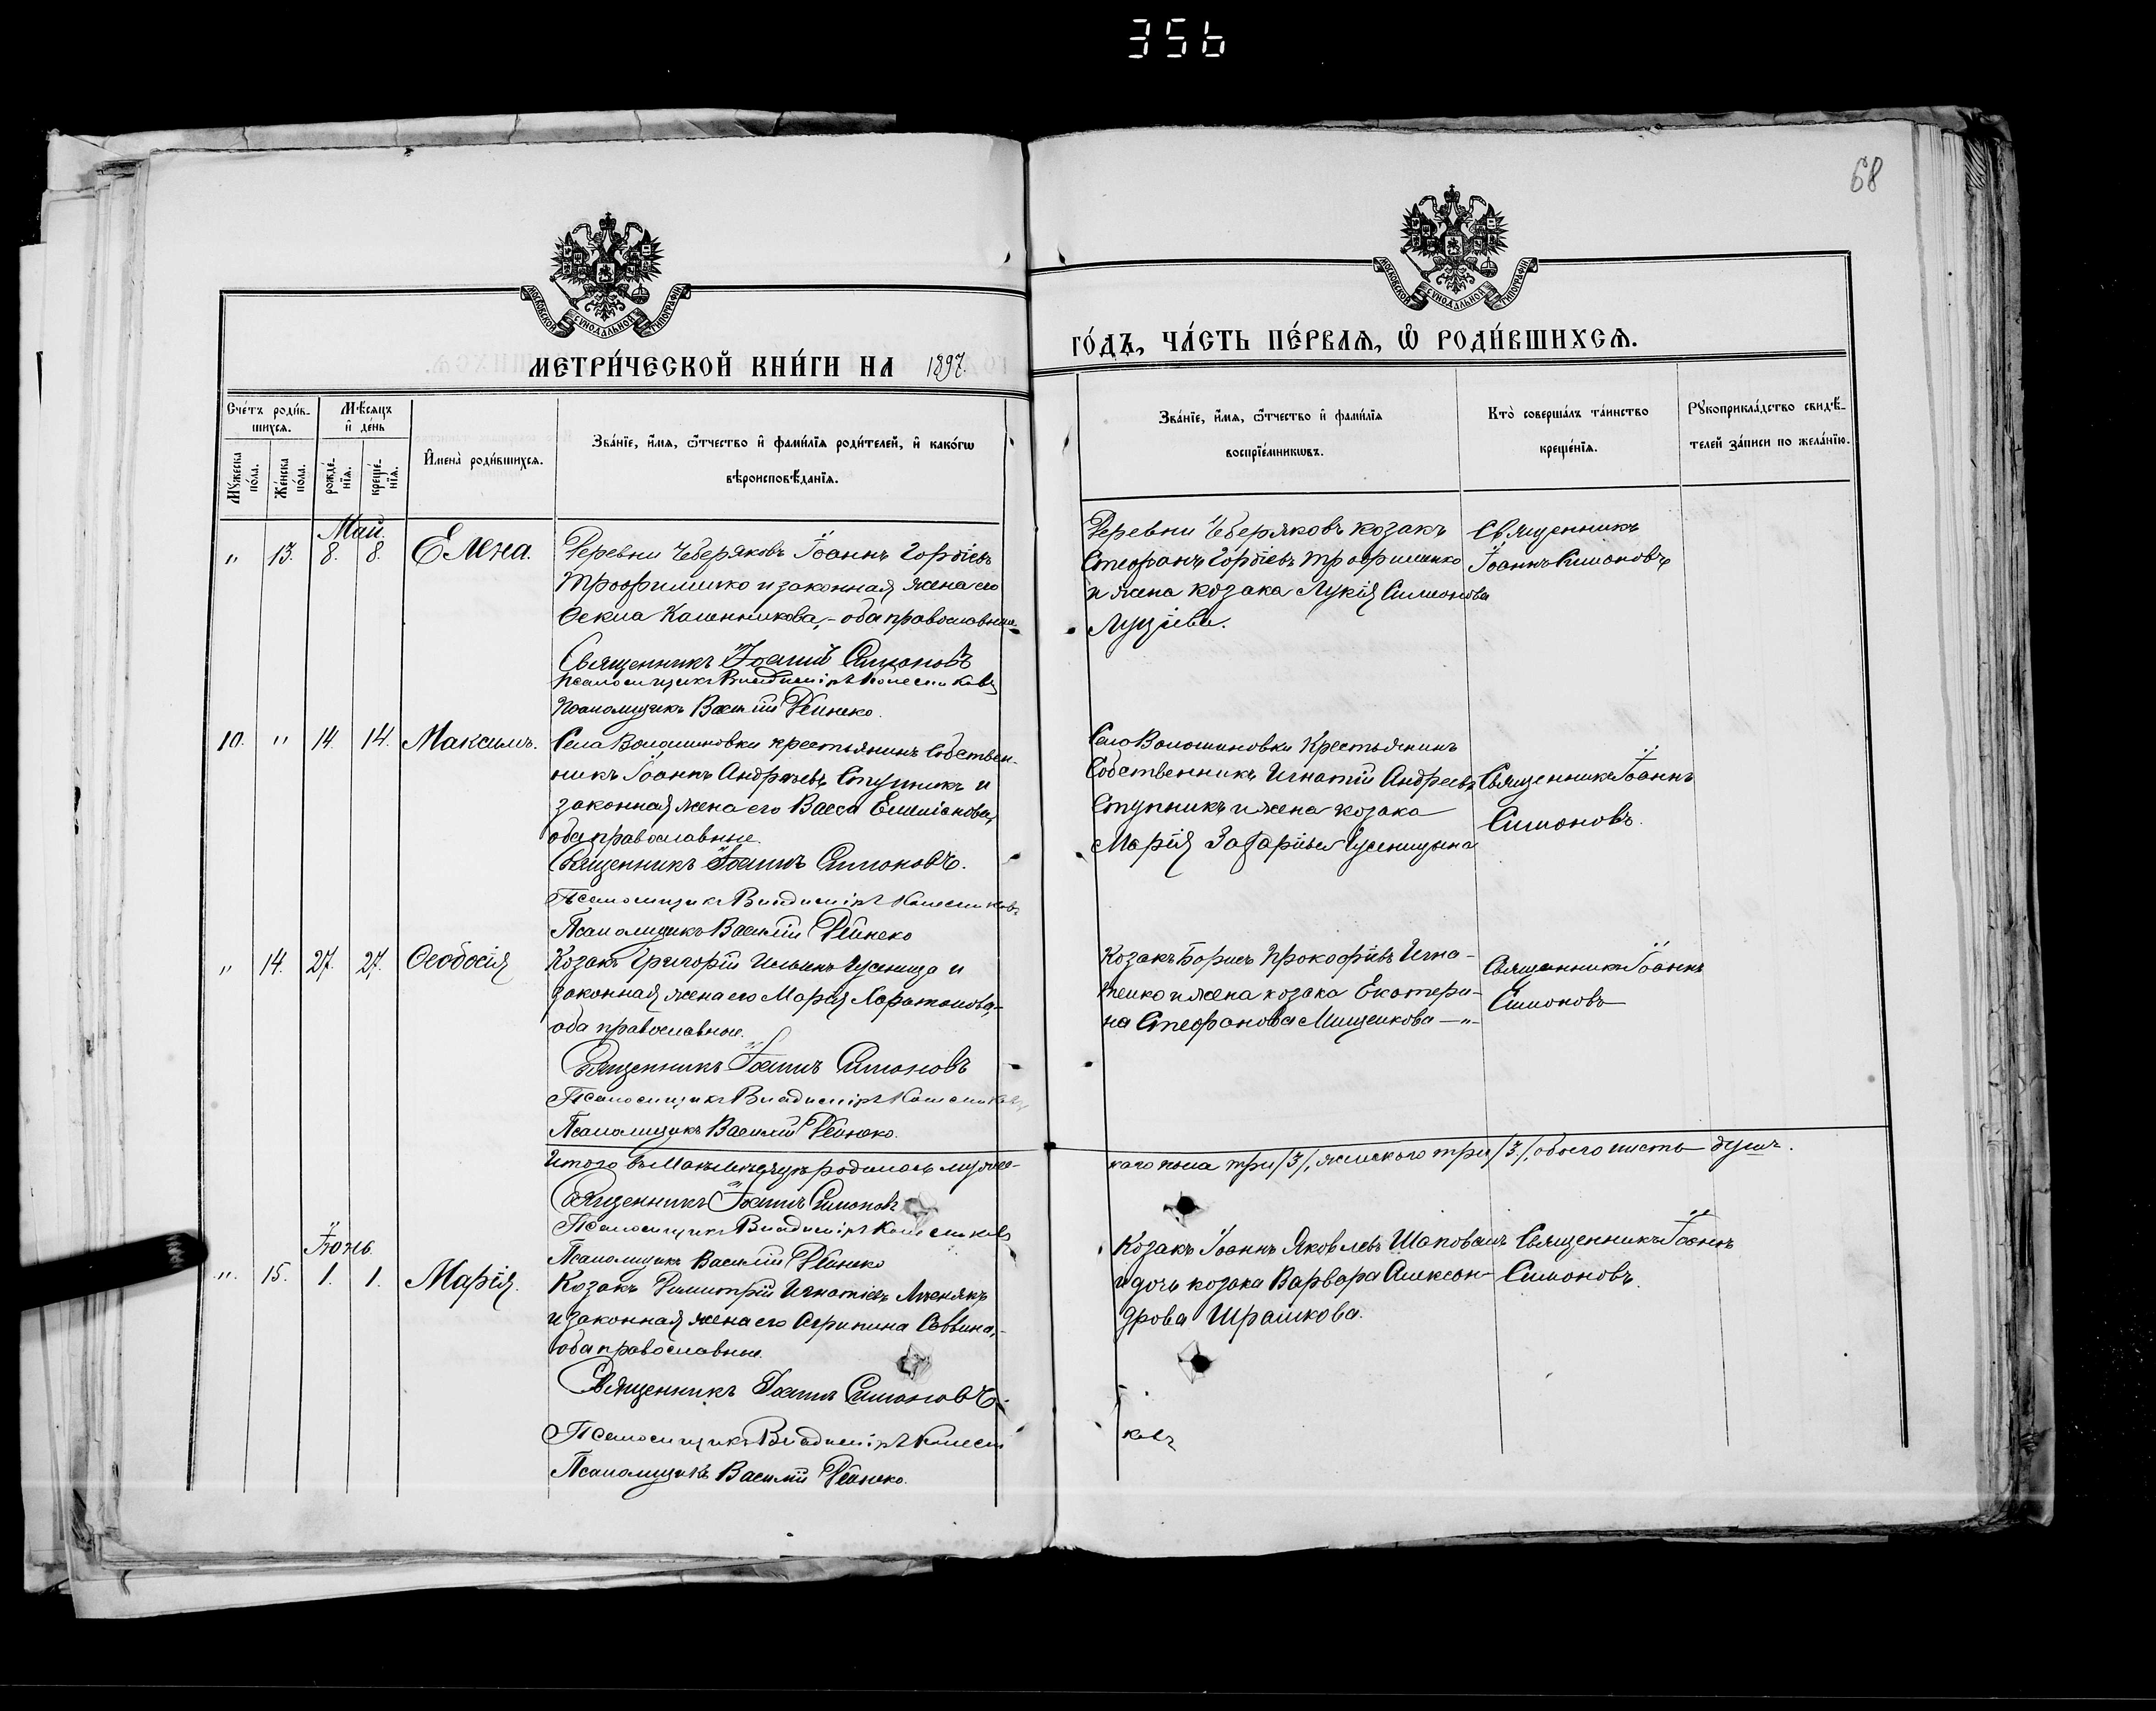 356
68
МОСКОВСКОЙ СѴНОДАЛЬНОЙ ТИПОГРАФІИ
МОСКОВСКОЙ СѴНОДАЛЬНОЙ ТИПОГРАФІИ
МЕТРИ́ЧЕСКОЙ КНИ́ГИ НА 1897.
ГО́ДЪ, ЧА́СТЬ ПЕ́РВАѦ, Ѡ҆ РОДИ́ВШИХСѦ.
Сче́тъ роди́в-
шихсѧ.
Мꙋ́жеска по́ла.
Же́нска по́ла.
Мѣ́сѧцъ
и҆ де́нь
рожде́-
нїѧ.
креще́-
нїѧ.
И҆мена̀ роди́вшихсѧ.
Зва́нїе, и҆́мѧ, ѻ҆́тчество и҆ фами́лїѧ роди́телей, и҆ како́гѡ
вѣроисповѣ́данїѧ.
Зва́нїе, и҆́мѧ, ѻ҆́тчество и҆ фами́лїѧ
воспрїе́мникѡвъ.
Кто̀ соверша́лъ та́инство
креще́нїѧ.
Рꙋкоприкла́дство свидѣ́-
телей за́писи по жела́нїю.
Май.
" 13. 8. 8. Елена.
Деревни Чеберяковъ Іоаннъ Гордіевъ
Трофименко и законная жена его
Калинникова, - оба православные
Священникъ Іоаннъ Симоновъ
Псаломщикъ Владиміръ Колесниковъ
Псаломщикъ Василій Рейнеко.
Деревни Чеберяковъ козакъ
Стефанъ Гордіевъ Трофименко
и жена козака Лукія Симеонова
Священникъ
Іоаннъ Симоновъ
10. " 14. 14. Максимъ.
Села Волошиновки крестьянинъ собствен-
никъ Іоаннъ Андреевъ Ступникъ и
законная жена его Васса
оба православные.
Священникъ Іоаннъ Симоновъ.
Псаломщикъ Владиміръ Колесниковъ
Псаломщикъ Василій Рейнеко
Села Волошиновки Крестьянинъ
Собственникъ Игнатій Андреевъ
Ступникъ и жена козака
Марія Захаріева Гусеницына
Священникъ Іоаннъ
Симоновъ.
" 14. 27. 27. Ѳеодосія
Козакъ Григорій Ильинъ Гусеница и
законная жена его Марія Харитонова,
оба православные.
Священникъ Іоаннъ Симоновъ
Псаломщикъ Владиміръ Колесниковъ
Псаломщикъ Василій Рейнеко.
Козакъ Борисъ Прокофіевъ Игна-
тенко и жена козака Екатери-
на Стефанова Мищенкова —"—
Священникъ Іоаннъ
Симоновъ
Итого въ Маѣ мѣсяцѣ родилось мужес-
каго пола три /3/, женскаго три /3/, обоего шесть душъ.
Священникъ Іоаннъ Симоновъ
Псаломщикъ Владиміръ Колесниковъ
Псаломщикъ Василій Рейнеко
Іюнь.
" 15. 1. 1. Марія.
Козакъ Димитрій Игнатіевъ
и законная жена его Агрипина Саввина,
оба православные.
Священникъ Іоаннъ Симоновъ.
Псаломщикъ Владиміръ Колесни
ковъ
Псаломщикъ Василій Рейнеко.
Козакъ Іоаннъ Яковлевъ Шаповалъ
и дочь козака Варвара Алексан-
дрова Шрамкова.
Священникъ Іоаннъ
Симоновъ.